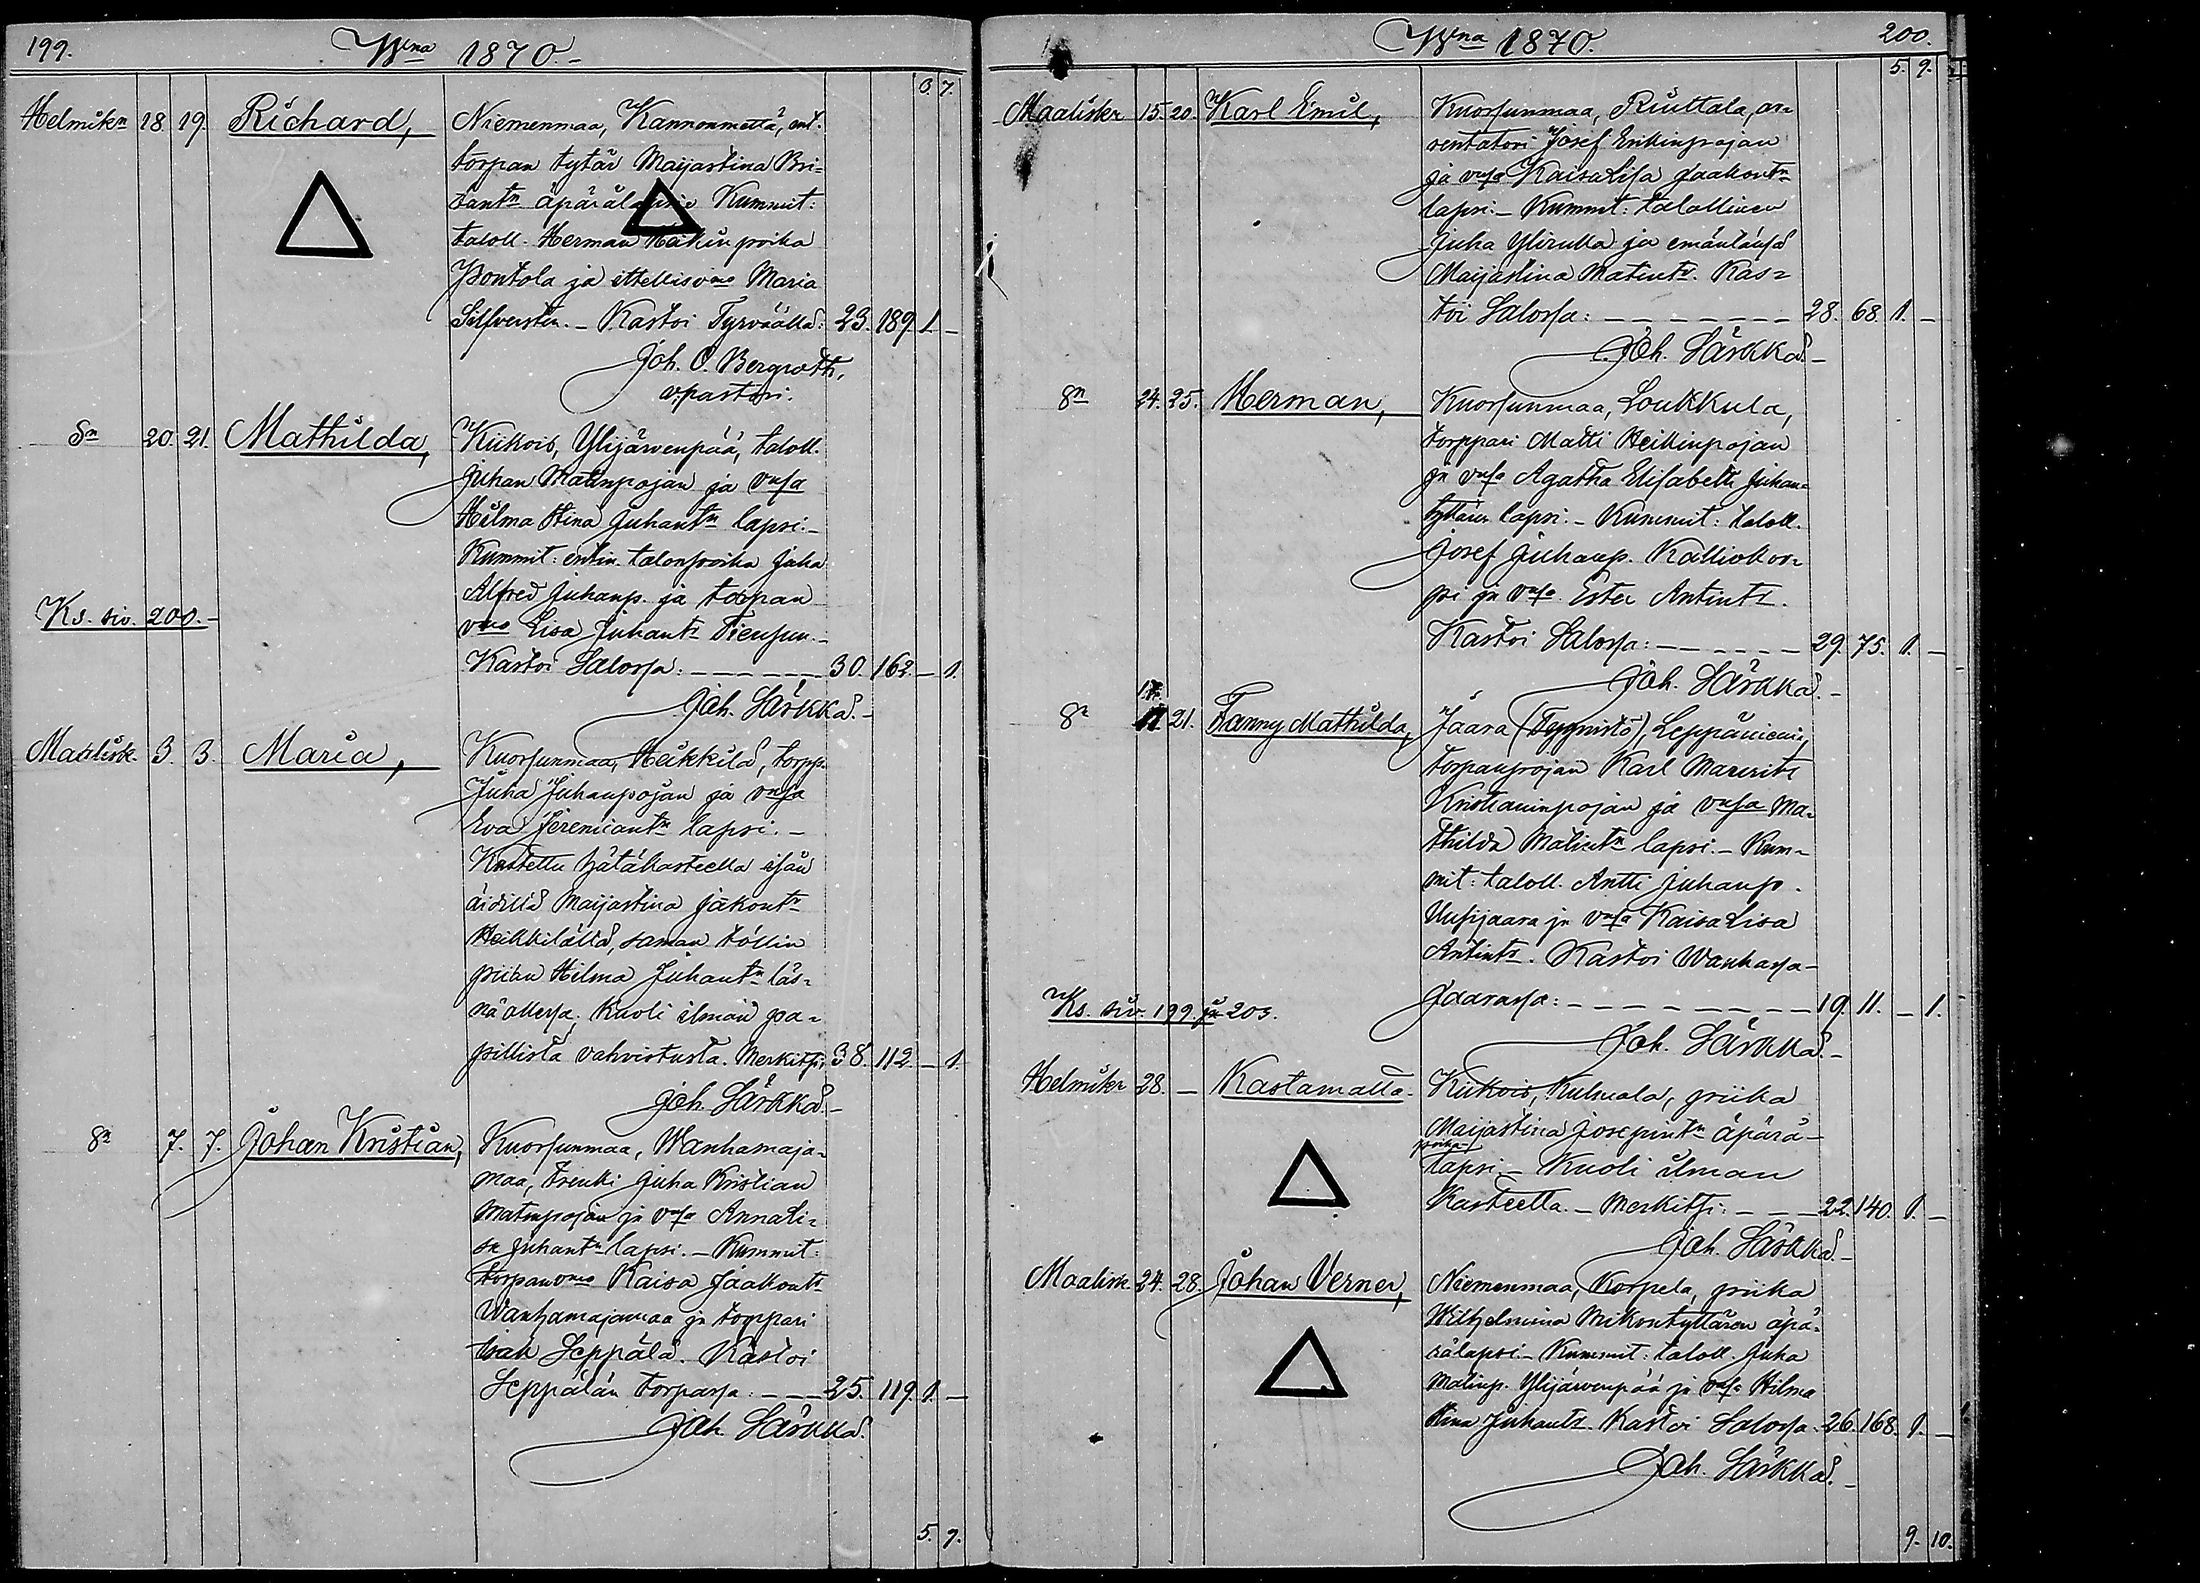 199. Wna 1870.
3. 7.
Helmikn 18. 19. Richard, Niemenmaa, Kannonmatta, ent.
torpan tytär Maijastina Bri-
tantn äpärälapsi Kummit:
taloll. Herman Heikin poika
Pontola ja ittellisvmo Maria
Silfversten. - Kastoi Tyrväällä: 23. 189. 1. -
Joh. O. Bergroth,
v.pastori.
Sn 20. 21. Mathilda, Kiikois, Ylijärvenpää, taloll.
Juhan Matinpojan ja vnsa
Hilma Stina Juhantn lapsi. -
Kummit: entin. talonpoika Juha
Alfred Juhanp. ja torpan
Ks. siv. 200. -
vmo Lisa Juhantr
Kastoi Salossa: - - - - - - 30. 162. - 1.
Joh. Särkkä. -
Maalisk. 3. 3. Maria, Kuorsunmaa, Heikkilä, torpp.
Juha Juhanpojan ja vnsa
Eva Jeremiantn lapsi. -
Kastettu hätäkasteella isän
äidiltä Maijastina Jakontr
Heikkilältä, saman töllin
piian Hilma Juhantn läs-
nä ollessa. Kuoli ilman pa-
pillista vahvistusta. Merkitsi: 38. 112. - 1.
Joh. Särkkä. -
Sn 7. 7. Johan Kristian, Kuorsunmaa, Wanhamaja-
maa, trenki Juha Kristian
Matinpojan ja vnsa Annali-
sa Juhantn lapsi. - Kummit:
torpanvmo Kaisa Jaakontr
Wanhamajamaa ja torppari
Isak Seppälä. Kastoi
Seppälän torpassa: - - - 25. 119. 1. -
Joh. Särkkä.
5. 9.
Wna 1870. 200.
5. 9.
Maalisk 15. 20. Karl Emil, Kuorsunmaa, Riuttala, ar-
rentatori Josef Erikinpojan
ja vnsa Kaisa Lisa Jaakontn
lapsi. - Kummit: talollinen
Juha Ylirulla ja emäntänsä
Maijastina Matintr. Kas-
toi Salossa: - - - - - - - 28. 68. 1. -
Joh. Särkkä. -
Sn 24. 25. Herman, Kuorsunmaa, Loukkula,
torppari Matti Heikinpojan
ja vnsa Agatha Elisabeth Juhan-
tyttären lapsi. - Kummit: taloll.
Josef Juhanp. Kalliokor-
pi ja vnsa Ester Antintr.
Kastoi Salossa: - - - - - 29. 75. 1. -
Joh. Särkkä. -
17.
Sn 21. Fanny Mathilda, Jaara (Teppnistö), Leppäniemi,
torpanpojan Karl Mauritz
Kristianinpojan ja vnsa Ma-
thilda Matintn lapsi. - Kum-
mit: taloll. Antti Juhanp.
Uusijaara ja vnsa Kaisa Lisa
Antintr. Kastoi Wanhassa-
Ks. siv. 199. ja 203. Jaarassa: - - - - - - - - 19. 11. - 1.
Joh. Särkkä. -
Helmikn 28. - Kastamatta. Kiikois, Kulmala, piika
Maijastina Josepintn äpärä-
poika
lapsi. - Kuoli ilman
Kasteetta. - Merkitsi: - - - 22. 140. 1. -
Joh. Särkkä. -
Maalisk. 24. 28. Johan Verner, Niemenmaa, Korpela, piika
Wilhelmina Mikontyttären äpä-
rälapsi. - Kummit: taloll. Juha
Matinp. Ylijärvenpää ja vnsa Hilma
Stina Juhantr. Kastoi Salossa. 26. 168. 1. -
Joh. Särkkä. -
9. 10.